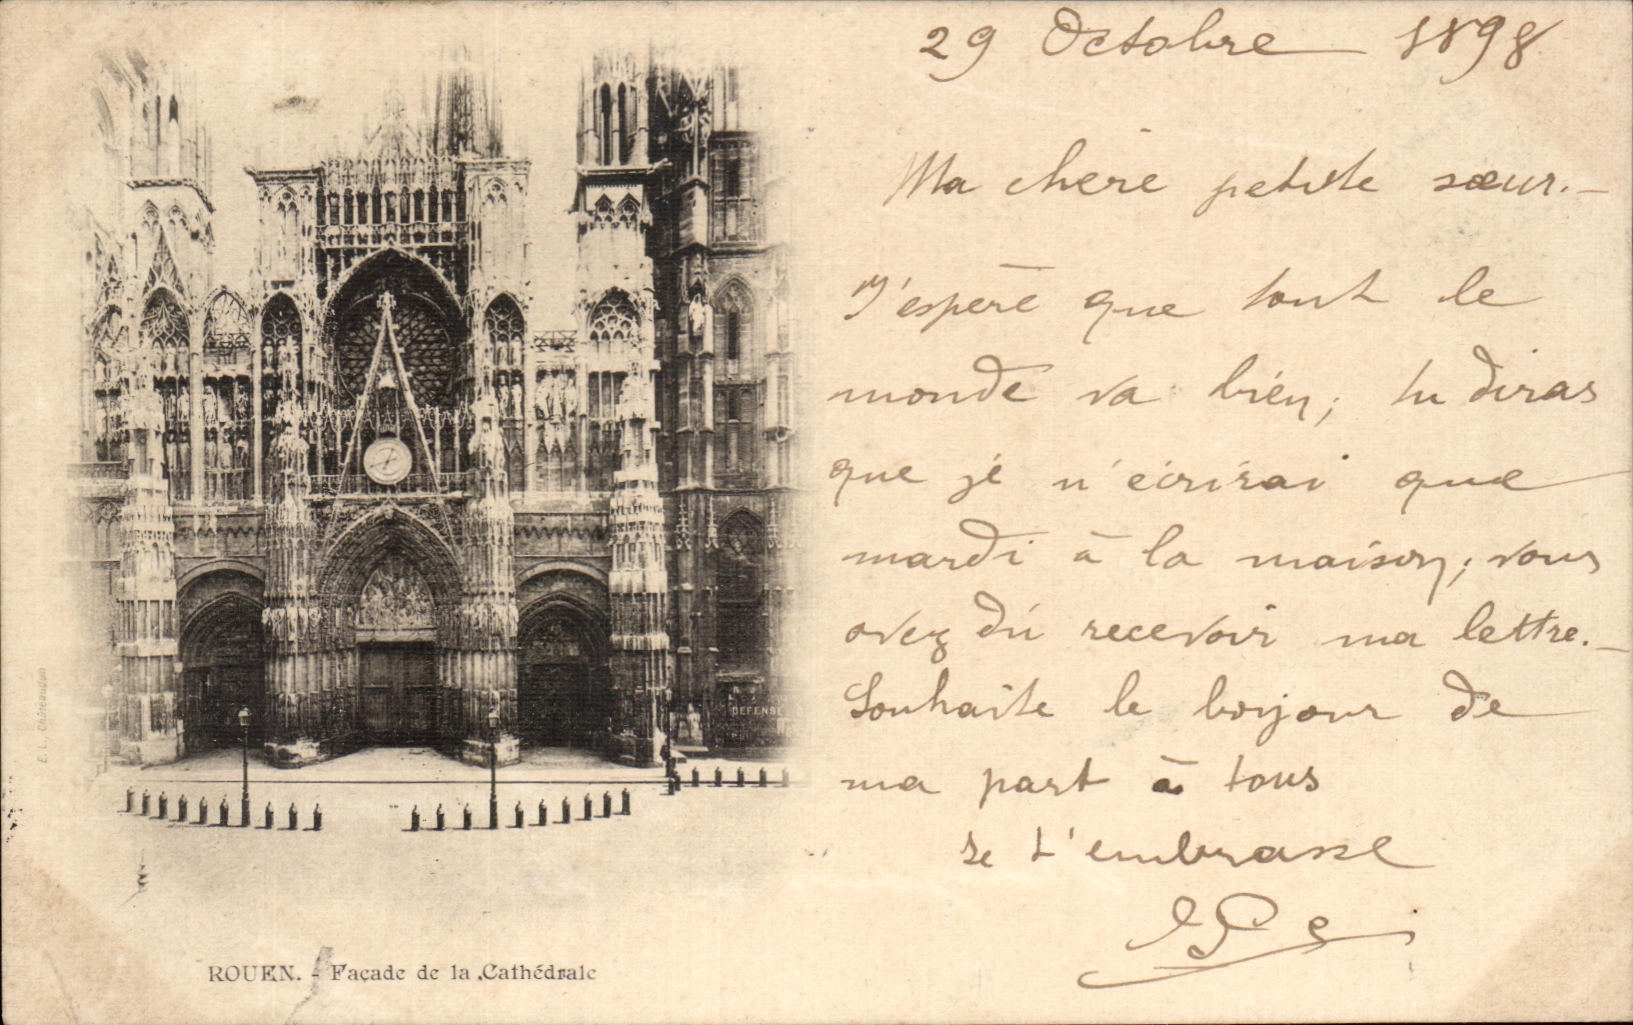 29 Octobre 1898
Ma chère petite sœur. —
J'espère que tout le
monde va bien; tu diras
que je n'écrirai que
mardi à la maison; vous
avez dû recevoir ma lettre. —
Souhaite le bonjour de
ma part à tous
Je t'embrasse
DEFENSE
E. L. Châteaudun
ROUEN. - Façade de la Cathédrale